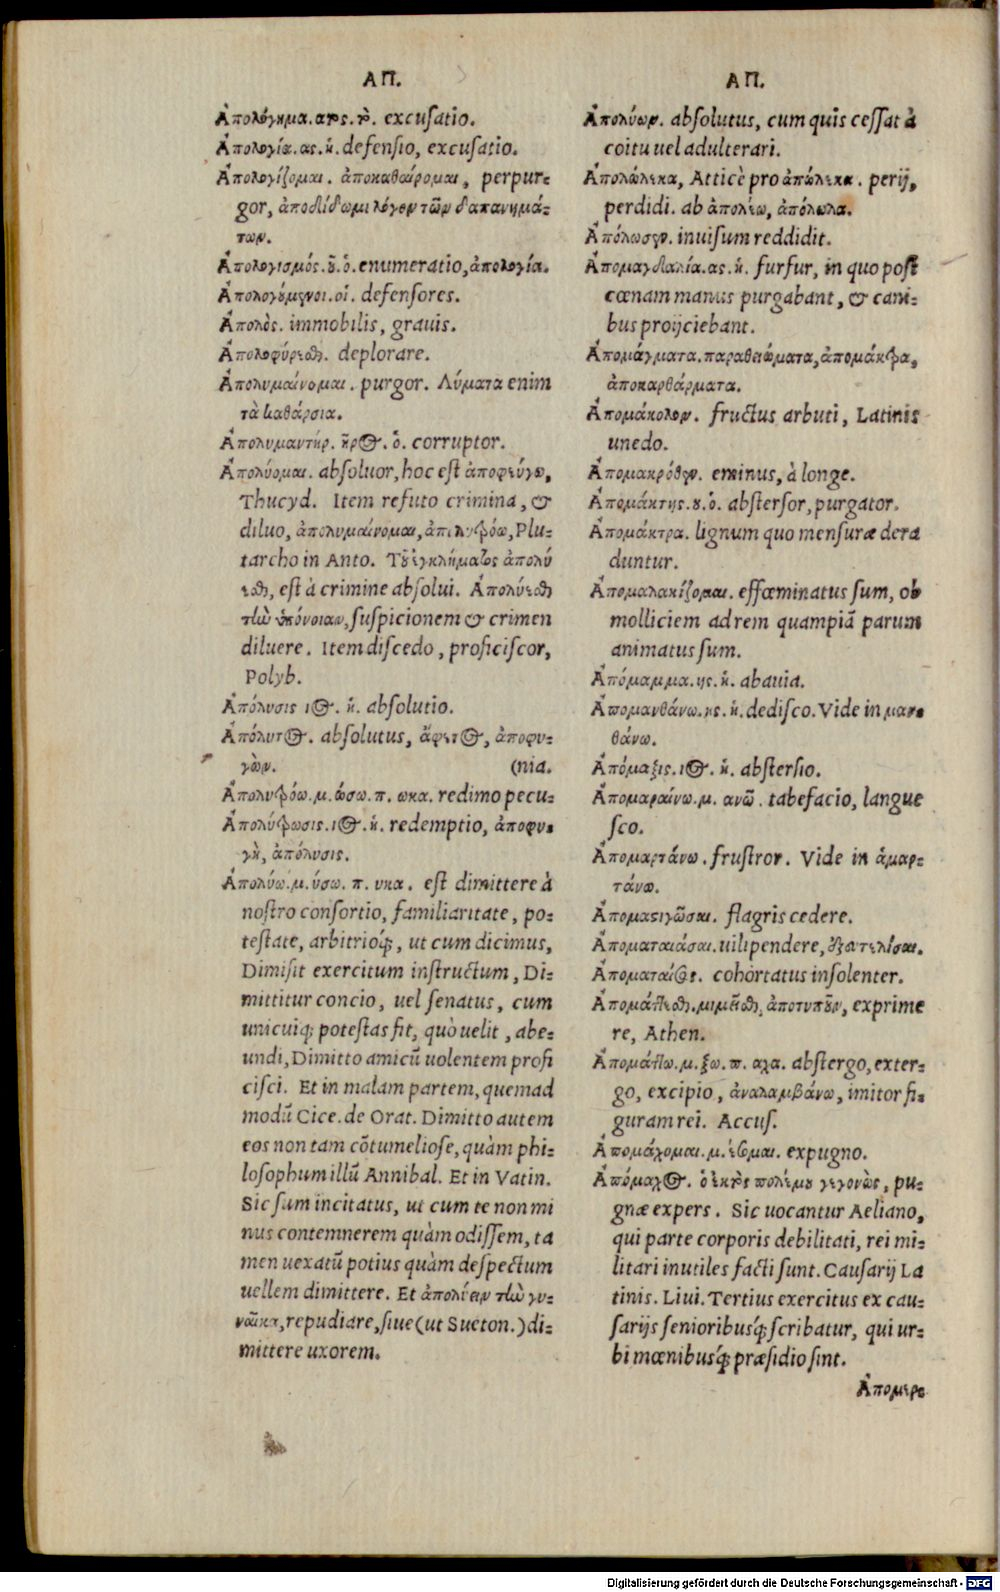 ΑΠ.
Ἀπολόγημα. ατος. τὸ. excusatio.
Ἀπολογία. ας. ἡ. defensio, excusatio.
Ἀπολογίζομαι. ἀποκαθαίρομαι, perpur-
gor, ἀποδίδωμι λόγον τῶν δαπανημά-
των.
Ἀπολογισμός. οῦ. ὁ. enumeratio, ἀπολογία.
Ἀπολογούμενοι. οἱ. defensores.
Ἀπολὸς. immobilis, grauis.
Ἀπολοφύρεσθαι. deplorare.
Ἀπολυμαίνομαι. purgor. Λύματα enim
τὰ καθάρσια.
Ἀπολυμαντήρ. ῆρος. ὁ. corruptor.
Ἀπολύομαι. absoluor, hoc est ἀποφεύγω,
Thucyd. Item refuto crimina, &
diluo, ἀπολυμαίνομαι, Plu-
tarcho in Anto. Τοῦ ἐγκλήματος ἀπολύ
εσθαι, est à crimine absolui. Ἀπολύεσθαι
τὴν ὑπόνοιαν, suspicionem & crimen
diluere. Item discedo, proficiscor,
Polyb.
Ἀπόλυσις ιος. ἡ. absolutio.
Ἀπόλυτος. absolutus, ἄφετος, ἀποφυ-
γὼν. (nia.
Ἀπολυτρόω. μ. ώσω. π. ωκα. redimo pecu-
Ἀπολύτρωσις. ιος. ἡ. redemptio, ἀποφυ-
γὴ, ἀπόλυσις.
Ἀπολύω. μ. ύσω. π. υκα. est dimittere à
nostro consortio, familiaritate, po-
testate, arbitrioq́;, ut cum dicimus,
Dimisit exercitum instructum, Di-
mittitur concio, uel senatus, cum
unicuiq; potestas fit, quò uelit, abe-
undi, Dimitto amicũ uolentem profi
cisci. Et in malam partem, quemad
modũ Cice. de Orat. Dimitto autem
eos non tam cõtumeliose, quàm phi-
losophum illũ Annibal. Et in Vatin.
Sic sum incitatus, ut cum te non mi
nus contemnerem quàm odissem, ta
men uexatũ potius quàm despectum
uellem dimittere. Et ἀπολύειν τὴν γυ-
ναῖκα, repudiare, siue (ut Sueton.) di-
mittere uxorem.
ΑΠ.
Ἀπολύων. absolutus, cum quis cessat à
coitu uel adulterari.
Ἀπολώλεκα, Atticè pro ἀπώλεκα. perij,
perdidi. ab ἀπολέω, ἀπόλωλα.
Ἀπόλωσεν. inuisum reddidit.
Ἀπομαγδαλία. ας. ἡ. furfur, in quo post
cœnam manus purgabant, & cani-
bus proijciebant.
Ἀπομάγματα. παραθειώματα, ἀπομάκτρα,
ἀποκαρθάρματα.
Ἀπομάκολον. fructus arbuti, Latinis
unedo.
Ἀπομακρόθεν. eminus, à longe.
Ἀπομάκτης. ου. ὁ. abstersor, purgator.
Ἀπομάκτρα. lignum quo mensuræ dera
duntur.
Ἀπομαλακίζομαι. effœminatus sum, ob
molliciem ad rem quampiã parum
animatus sum.
Ἀπόμαμμα. ης. ἡ. abauia.
Ἀπομανθάνω. κς. ἡ. dedisco. Vide in μαν-
θάνω.
Ἀπόμαξις. ιος. ἡ. abstersio.
Ἀπομαραίνω. μ. ανῶ. tabefacio, langue
sco.
Ἀπομαρτάνω. frustror. Vide in ἁμαρ-
τάνω.
Ἀπομαστιγῶσαι. flagris cedere.
Ἀποματαιάσαι. uilipendere, ἐξευτελίσαι.
Ἀποματαίσας. cohortatus insolenter.
Ἀπομάττεσθαι. μιμεῖσθαι, ἀποτυποῦν, exprime
re, Athen.
Ἀπομάττω. μ. ξω. π. αχα. abstergo, exter-
go, excipio, ἀναλαμβάνω, imitor fi-
guram rei. Accus.
Ἀπομάχομαι. μ. έσομαι. expugno.
Ἀπόμαχος. ὁ ἐκτὸς πολέμου γεγονὼς, pu-
gnæ expers. Sic uocantur Aeliano,
qui parte corporis debilitati, rei mi-
litari inutiles facti sunt. Causarij La
tinis. Liui. Tertius exercitus ex cau-
sarijs senioribusq́; scribatur, qui ur-
bi mœnibusq́; præsidio sint.
Ἀπομερ-
Digitalisierung gefördert durch die Deutsche Forschungsgemeinschaft - DFG